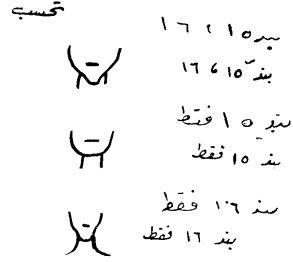 تحسب
بند ١٥ ، ١٦
بند ١٥ ، ١٦
بند ١٥ فقط
بند ١٥ فقط
بند ١٦ فقط
بند ١٦ فقط